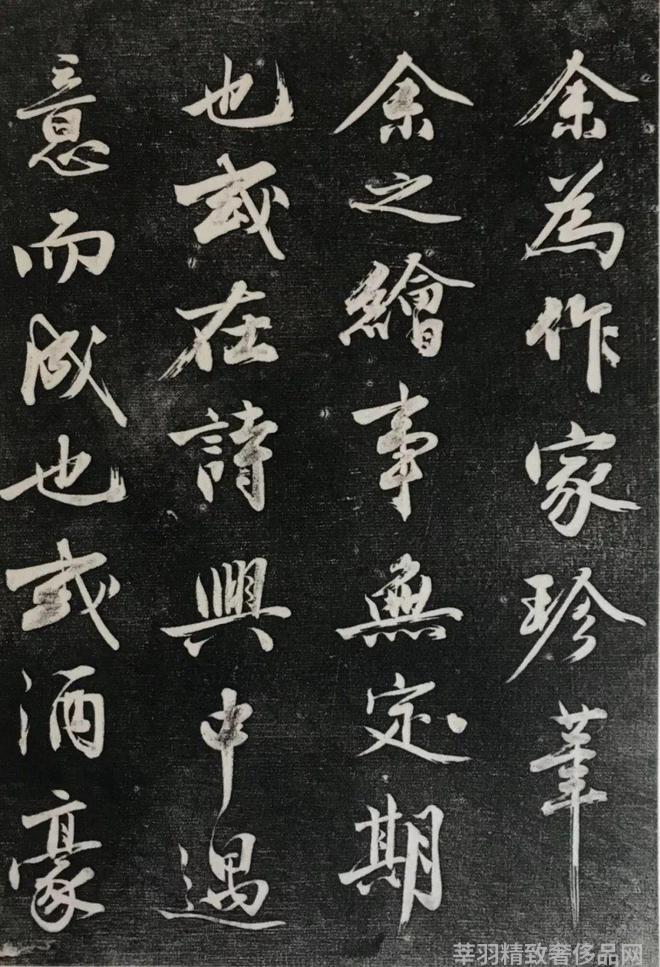 余為作家珍筆
余之繪事無定期
也或在詩興中遇
意而成也或酒豪
莘羽精致奢侈品网